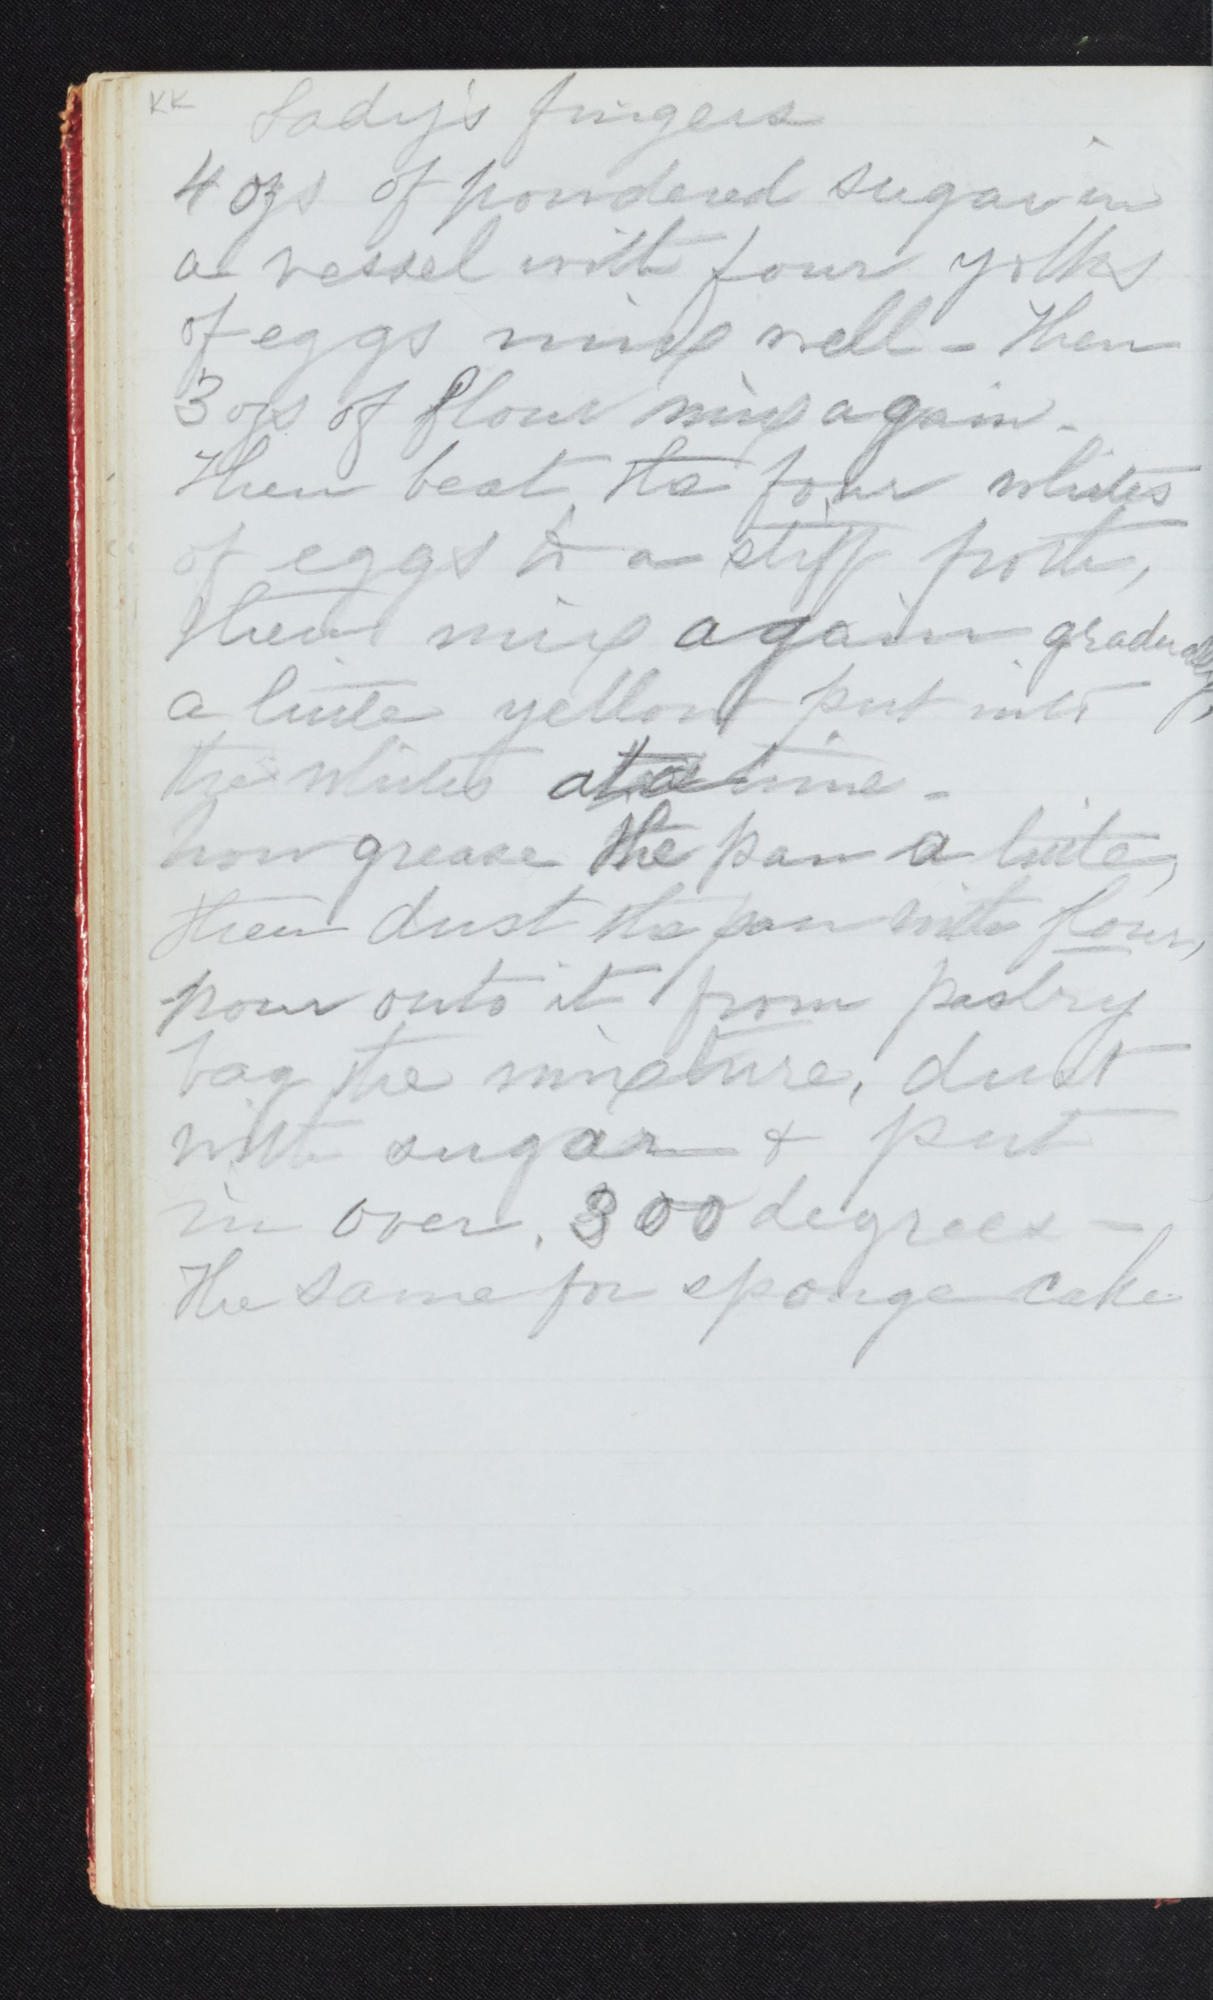 KK
Lady's fingers
4 ozs of powdered sugar in
a vessel with four yolks
of eggs mix well - Then
3 ozs of flour mix again -
Then beat the four whites
of eggs to a stiff froth,
then mix again gradually,
a little yellow put into
the whites at a time -
now grease the pan a little,
then dust the pan with flour,
pour onto it from pastry
bag the mixture, dust
with sugar & put
in oven, 300 degrees -
The same for sponge cake